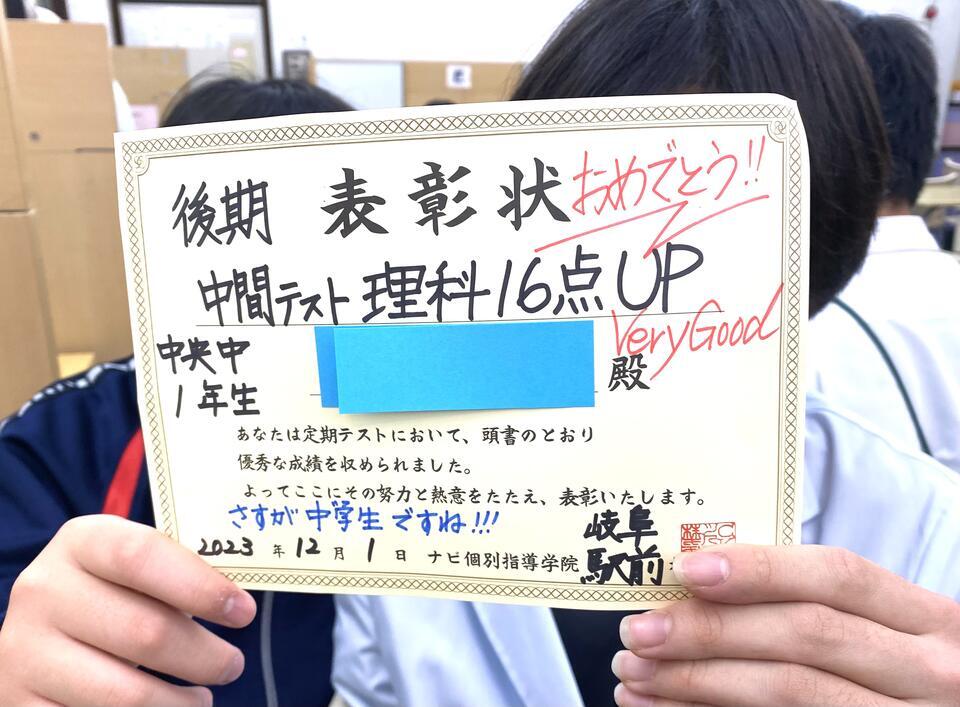 後期 表彰状 おめでとう!!
中間テスト 理科16点UP
Very Good
中央中
1年生
殿
あなたは定期テストにおいて、頭書のとおり
優秀な成績を収められました。
よってここにその努力と熱意をたたえ、表彰いたします。
さすが中学生ですね!!!
2023年12月1日 ナビ個別指導学院 岐阜
駅前